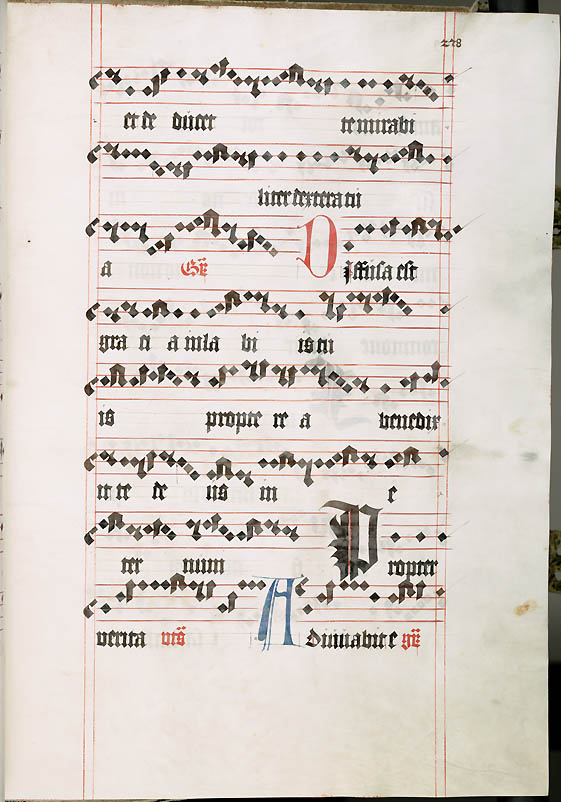 228
et de ducet te mirabi
liter dextera tu
a Gr̄
Diffusa est
gra ci a in la bi is tu
is propte re a benedix
it te de us in e
ter num Propter
verita v̄s Adiuuabit e gr̄